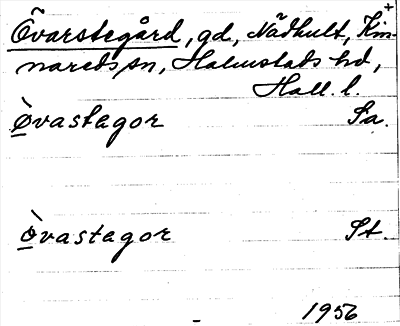 Övarstegård, gd, Nådhult, Kin-
nareds sn, Halmstads hd,
Hall. l.
òvastagor Sa.
òvastagor St.
1956